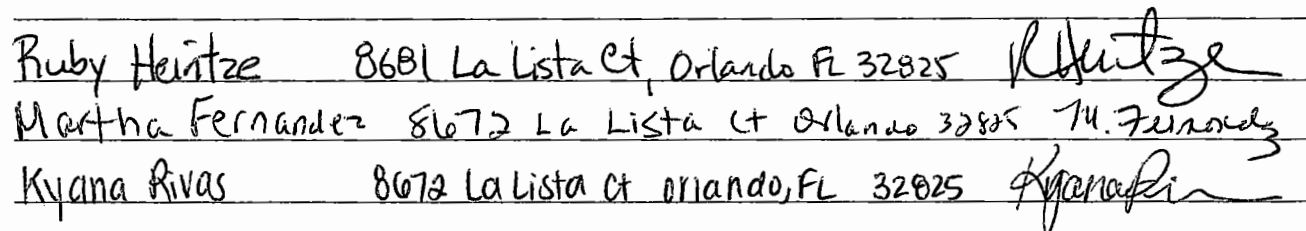 Ruby Heintze 8681 La Lista Ct, Orlando FL 32825 RHeintze
Martha Fernandez 8672 La Lista Ct Orlando 32825 M. Fernandez
Kyana Rivas 8672 La Lista Ct Orlando, FL 32825 Kyana Ri